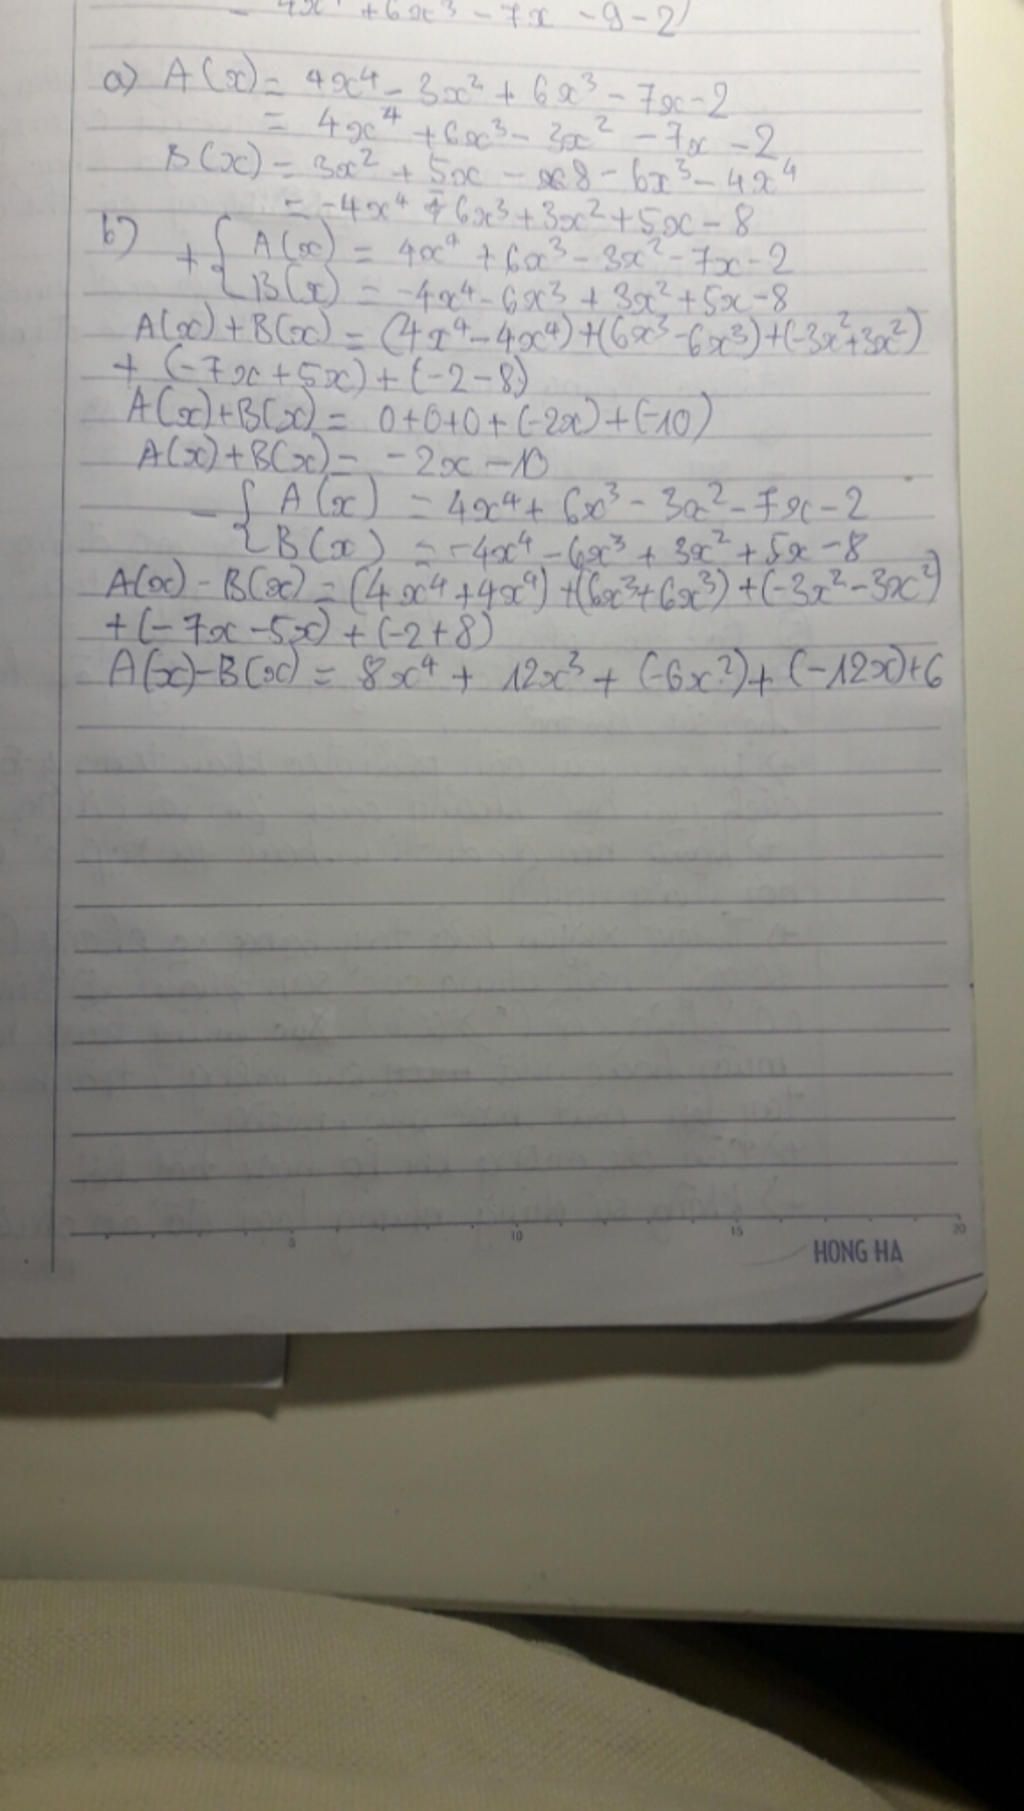 4x⁴ + 6x³ - 7x - 9 - 2
a) A(x) = 4x⁴ - 3x² + 6x³ - 7x - 2
= 4x⁴ + 6x³ - 3x² - 7x - 2
B(x) = 3x² + 5x - 8 - 6x³ - 4x⁴
= -4x⁴ - 6x³ + 3x² + 5x - 8
b) + { A(x) = 4x⁴ + 6x³ - 3x² - 7x - 2
B(x) = -4x⁴ - 6x³ + 3x² + 5x - 8
A(x) + B(x) = (4x⁴ - 4x⁴) + (6x³ - 6x³) + (-3x² + 3x²)
+ (-7x + 5x) + (-2 - 8)
A(x) + B(x) = 0 + 0 + 0 + (-2x) + (-10)
A(x) + B(x) = -2x - 10
- { A(x) = 4x⁴ + 6x³ - 3x² - 7x - 2
B(x) = -4x⁴ - 6x³ + 3x² + 5x - 8
A(x) - B(x) = (4x⁴ + 4x⁴) + (6x³ + 6x³) + (-3x² - 3x²)
+ (-7x - 5x) + (-2 + 8)
A(x) - B(x) = 8x⁴ + 12x³ + (-6x²) + (-12x) + 6
5 10 15 20
HONG HA